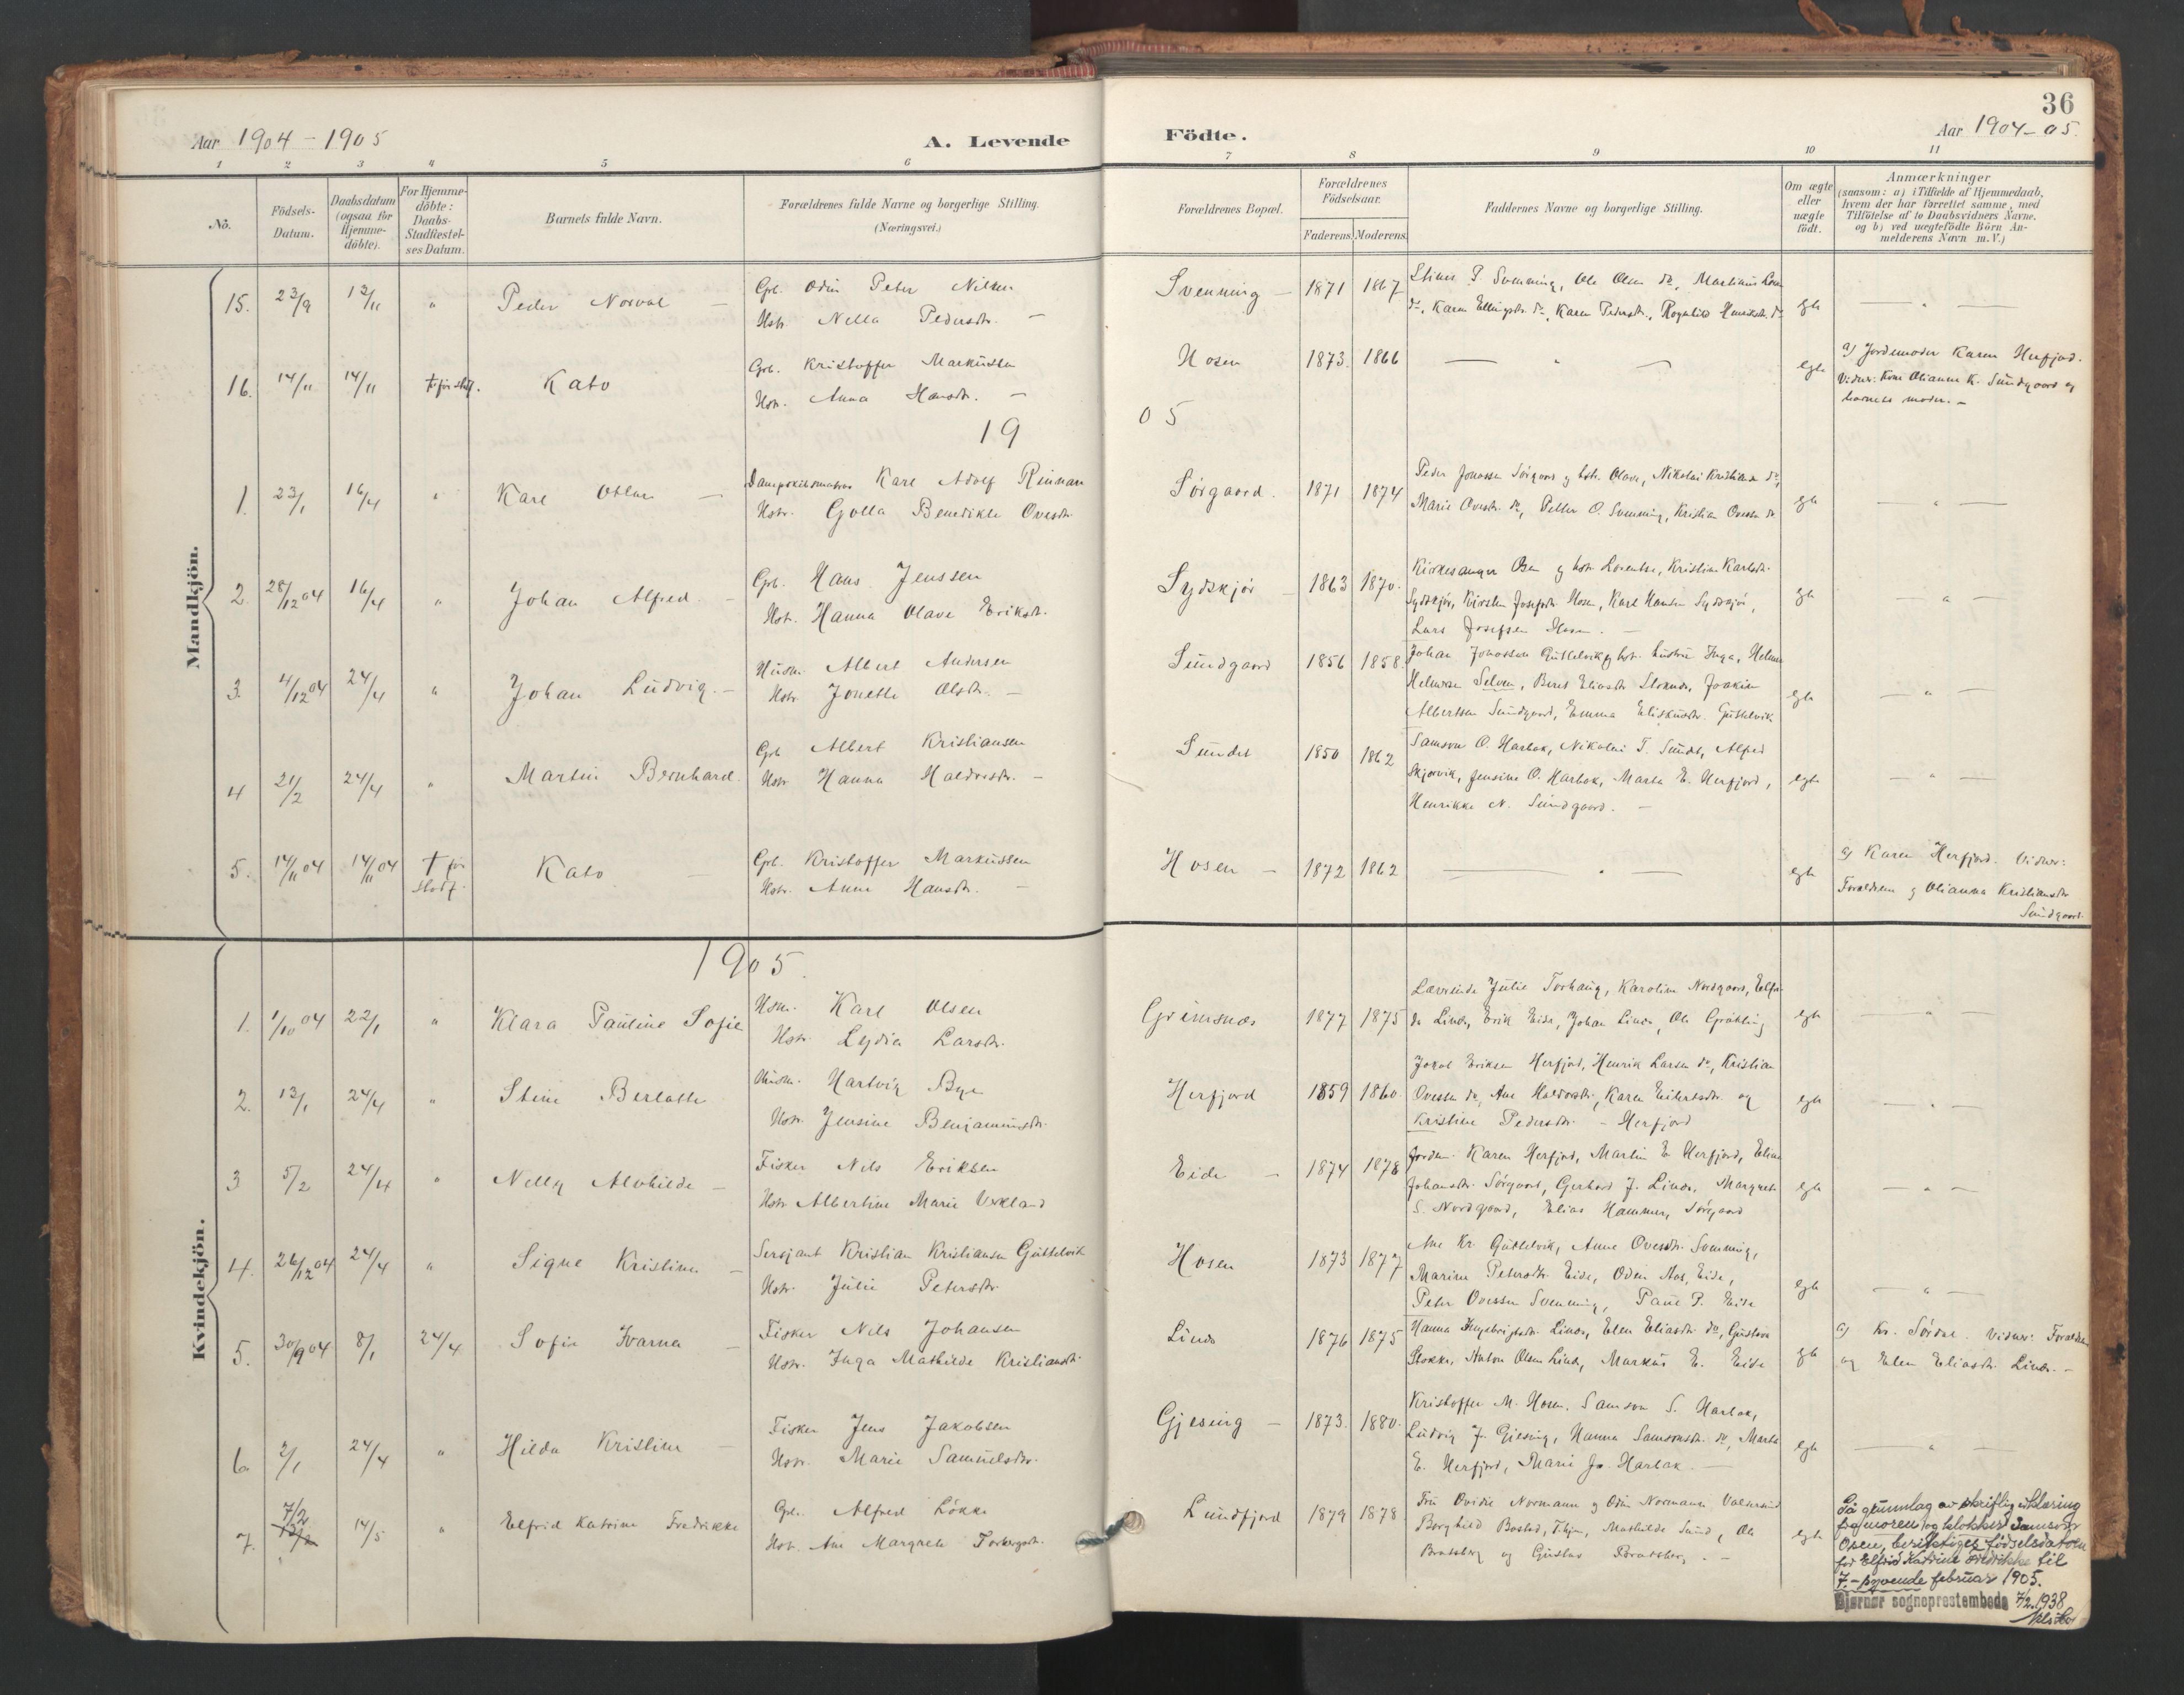 36
Aar 1904 - 1905
A. Levende
Födte.
Aar 1904-05.
1 2 3 4 5 6 7 8 9 10 11
No.
Födsels-
Datum.
Daabsdatum
(ogsaa for
Hjemme-
döbte).
For Hjemme-
döbte:
Daabs-
Stadfæstel-
ses Datum.
Barnets fulde Navn.
Forældrenes fulde Navne og borgerlige Stilling.
(Næringsvei.)
Forældrenes Bopæl.
Forældrenes
Födselsaar.
Faderens. Moderens.
Faddernes Navne og borgerlige Stilling.
Om ægte
eller
uægte
födt.
Anmærkninger
(saasom: a) i Tilfælde af Hjemmedaab,
hvem der har forrettet samme, med
Tilföielse af to Daabsvidners Navne.
og b) ved uægtefödte Börn An-
melderens Navn m.V.)
Mandkjön.
15. 23/9 13/11 " Peder Norval
Gbr. Odin Peter Nilsen
Hstr. Nella Pedersdtr.
Svenning 1871 1867
Ole Olsen do,
do, Karen Ellingsdtr. do, Karen Pedersdtr., Ragnhild Henriksdtr. do
egte
16. 14/11 14/11 † før stadf. Kato
Gbr. Kristoffer Markussen
Hstr. Anna Hansdtr.
Hosen 1873. 1866
egte
a) Jordemoder Karen Herfjord.
Vidner: Kone Olianna K. Sundgaard og
barnets moder.
1905
1. 23/1 16/4 " Karl Otlar
Karl Adolf Rinnan
Hstr. Golla Benedikte Ovesdtr.
Sörgaard. 1871 1874
Peder Jonassen Sörgaard og hstr. Olava, Nikolai Kristiansen do,
Marie Ovesdtr. do, Petter O. Svenning, Kristian Ovesen do
egte
2. 28/12 04 16/4 " Johan Alfred.
Gbr. Hans Jenssen
Hstr. Hanna Olava Eriksdtr.
Sydskjör 1863 1870.
Kirkesanger Osen og hstr. Lorentse, Kristine Karlsdtr.
Sydskjör, Kirsten Josefsdtr. Hosen, Karl Hansen Sydskjör,
Lars Josefsen Hosen.
egte
3. 4/12 04 24/4 " Johan Ludvig.
Husm. Albert Andersen
Hstr. Jonette Olsdtr.
Sundgaard 1856 1858.
Johan Jonassen Guttelvik og hst. Inga,
Selven, Beret Eliasdtr. Joakim
Albertsen Sundgaard, Emma Guttelvik
egte
4 21/2 24/4 " Martin Bernhard.
Gbr. Albert Kristiansen
Hstr. Hanna Haldorsdtr.
Sundet 1850 1862
Samson O. Harbak, Nikolai T. Sundet, Alfred
Skjervik, Jensine O. Harbak, Marta E. Herfjord,
Henrikke N. Sundgaard.
egte
5. 14/11 04 14/11 04 † før stadf. Kato
Gbr. Kristoffer Markussen
Hstr. Anna Hansdtr.
Hosen 1872 1862
egte
a) Karen Herfjord. Vidner:
Forældrene og Olianna Kristiansdtr
Sundgaard.
Kvindekjön.
1905.
1. 1/10 04 22/1 " Klara Pauline Sofie
Husm. Karl Olsen
Hstr. Lydia Larsdtr.
Grimsnes 1877 1875
Lærerinde Julie Torhaug, Karoline Nordgaard, Elfri-
da Linde, Erik Eide, Johan Linde, Ole
egte
2. 13/1 24/4 " Stine Berlotte
Husm. Hartvig Bye
Hstr. Jensine Benjaminsdtr.
Herfjord 1859 1860.
Jakob Eriksen Herfjord, Henrik Larsen do, Kristian
Ovessen do, Ane Haldorsdtr., Karen Eilertsdtr. og
Kristine Pedersdtr. - Herfjord
egte
3 5/2 24/4 " Nelly Alvhilde
Fisker Nils Eriksen
Hstr Albertine Marie Vikland
Eide 1874 1878
Jordem. Karen Herfjord, Martin E. Herfjord, Eline
Johansdtr. Sörgaard, Gerhard J. Linde, Margret
S. Nordgaard, Elias Hammer, Sörgaard
egte
4. 26/12 04 24/4 " Signe Kristine
Sersjant Kristian Kristiansen Guttelvik
Hstr. Julie Petersdtr.
Hosen 1873 1877
Ane Kr. Guttelvik, Anne Ovesdtr. Svenning,
Marine Petersdtr. Eide, Oden Aas, Eide,
Peter Ovessen Svenning, Paul P. Eide
egte
5. 30/9 04 8/1 24/4 Sofie Ivarna
Fisker Nils Johansen
Hstr. Inga Mathilde Kristiansdtr.
Linde 1876 1875
Hanna Ingebrigtsdtr. Linde, Elen Eliasdtr. do, Gustava
Stokke, Anton Olsen Linde, Markus E. Eide
egte
a) Kr. Sördal. Vidner: Forældrene
og Elen Eliasdtr. Linde.
6. 2/1 24/4 " Hilda Kristine
Fisker Jens Jakobsen
Hstr. Marie Samuelsdtr.
Gjesing 1873. 1880.
Kristoffer M. Hosen, Samson S. Harbak,
Ludvig J. Giesing, Hanna Samsonsdtr. do, Marta
E. Herfjord, Marie Jo. Harbak.
egte
7. 7/2 14/5 " Elfrid Katrine Fredrikke
Gbr. Alfred Lökke
Hstr. Ane Margrete Torbergsdtr.
Lundfjord 1879 1878
Fru Ovidie Normann og Odin Normann Valdersund
Borghild Bosted, Mathilde Sund, Ole
Bratsberg og Gustav Bratsberg.
egte
På grunnlag av skriftlig erklæring
fra moren og klokker Samson
Osen, beriktiges fødselsdatoen
for Elfrid Katrine Fredrikke til
7.- syvende februar 1905.
Bjørnør sogneprestembede 7/2.1938